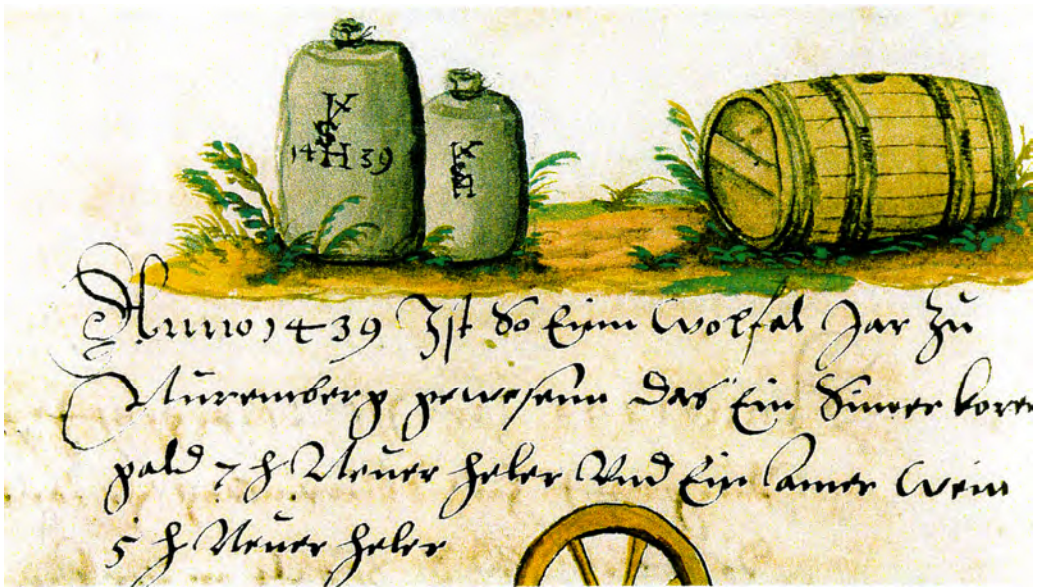 K
S
14 H 39
K
S
H
Anno 1439 Ist So Eynn Wolfal Jar zu
Nuremberg gewesenn das Ein Simer korn
gald 7 h Neuer heler Und Ein amer Wein
5 h Neuer heler